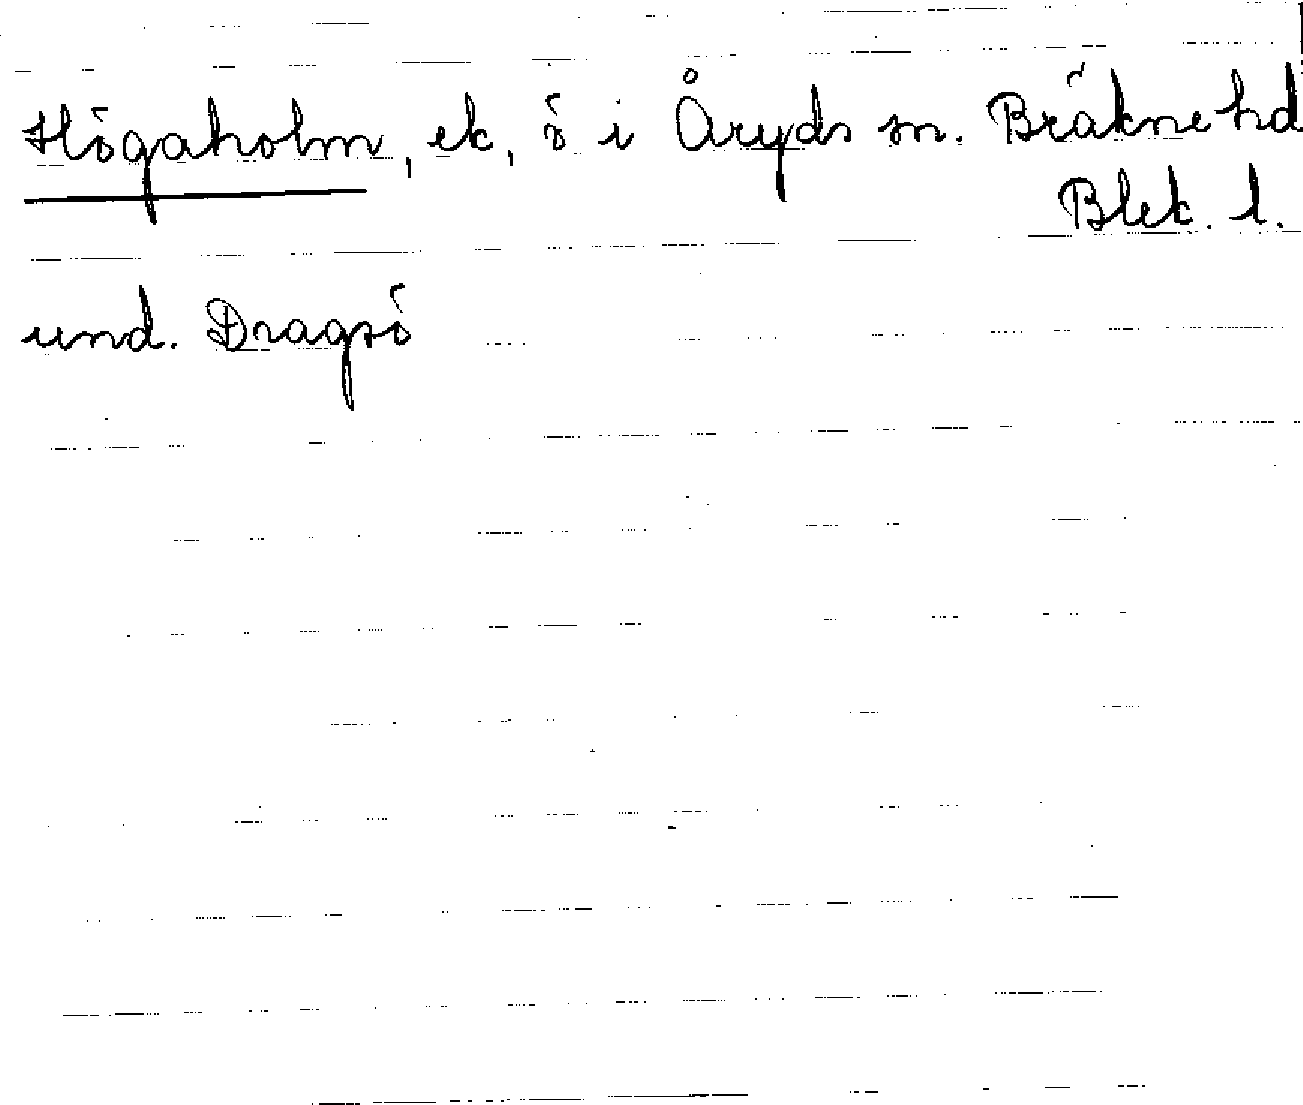 Högaholm, ek, ö i Åryds sn. Bräkne hd
Blek. l.
und. Dragsö